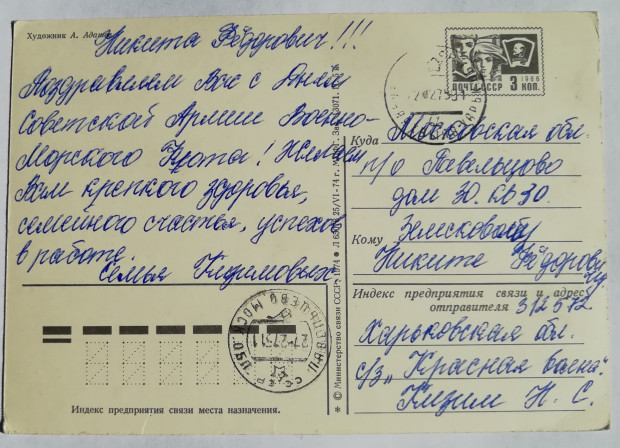 Художник А. Адамов
Никита Фёдорович!!!
Поздравляем Вас с Днём
Советской Армии Военно-
Морского Флота! Желаем
Вам крепкого здоровья,
семейного счастья, успехов
в работе.
Семья Климовых
1966
ПОЧТА СССР 3 КОП.
Куда Московская обл.
п/о Павельцево
дом 30. кв 30.
Кому Земскову
Никите Фёдорову
Индекс предприятия связи и адрес
отправителя 312572
Харьковская обл.
с/з "Красная волна"
Н. С.
Индекс предприятия связи места назначения.
© Министерство связи СССР, 1974
25/VI-74 г.
ПАВЕЛЬЦЕВО МОСК. ОБЛ.
СССР